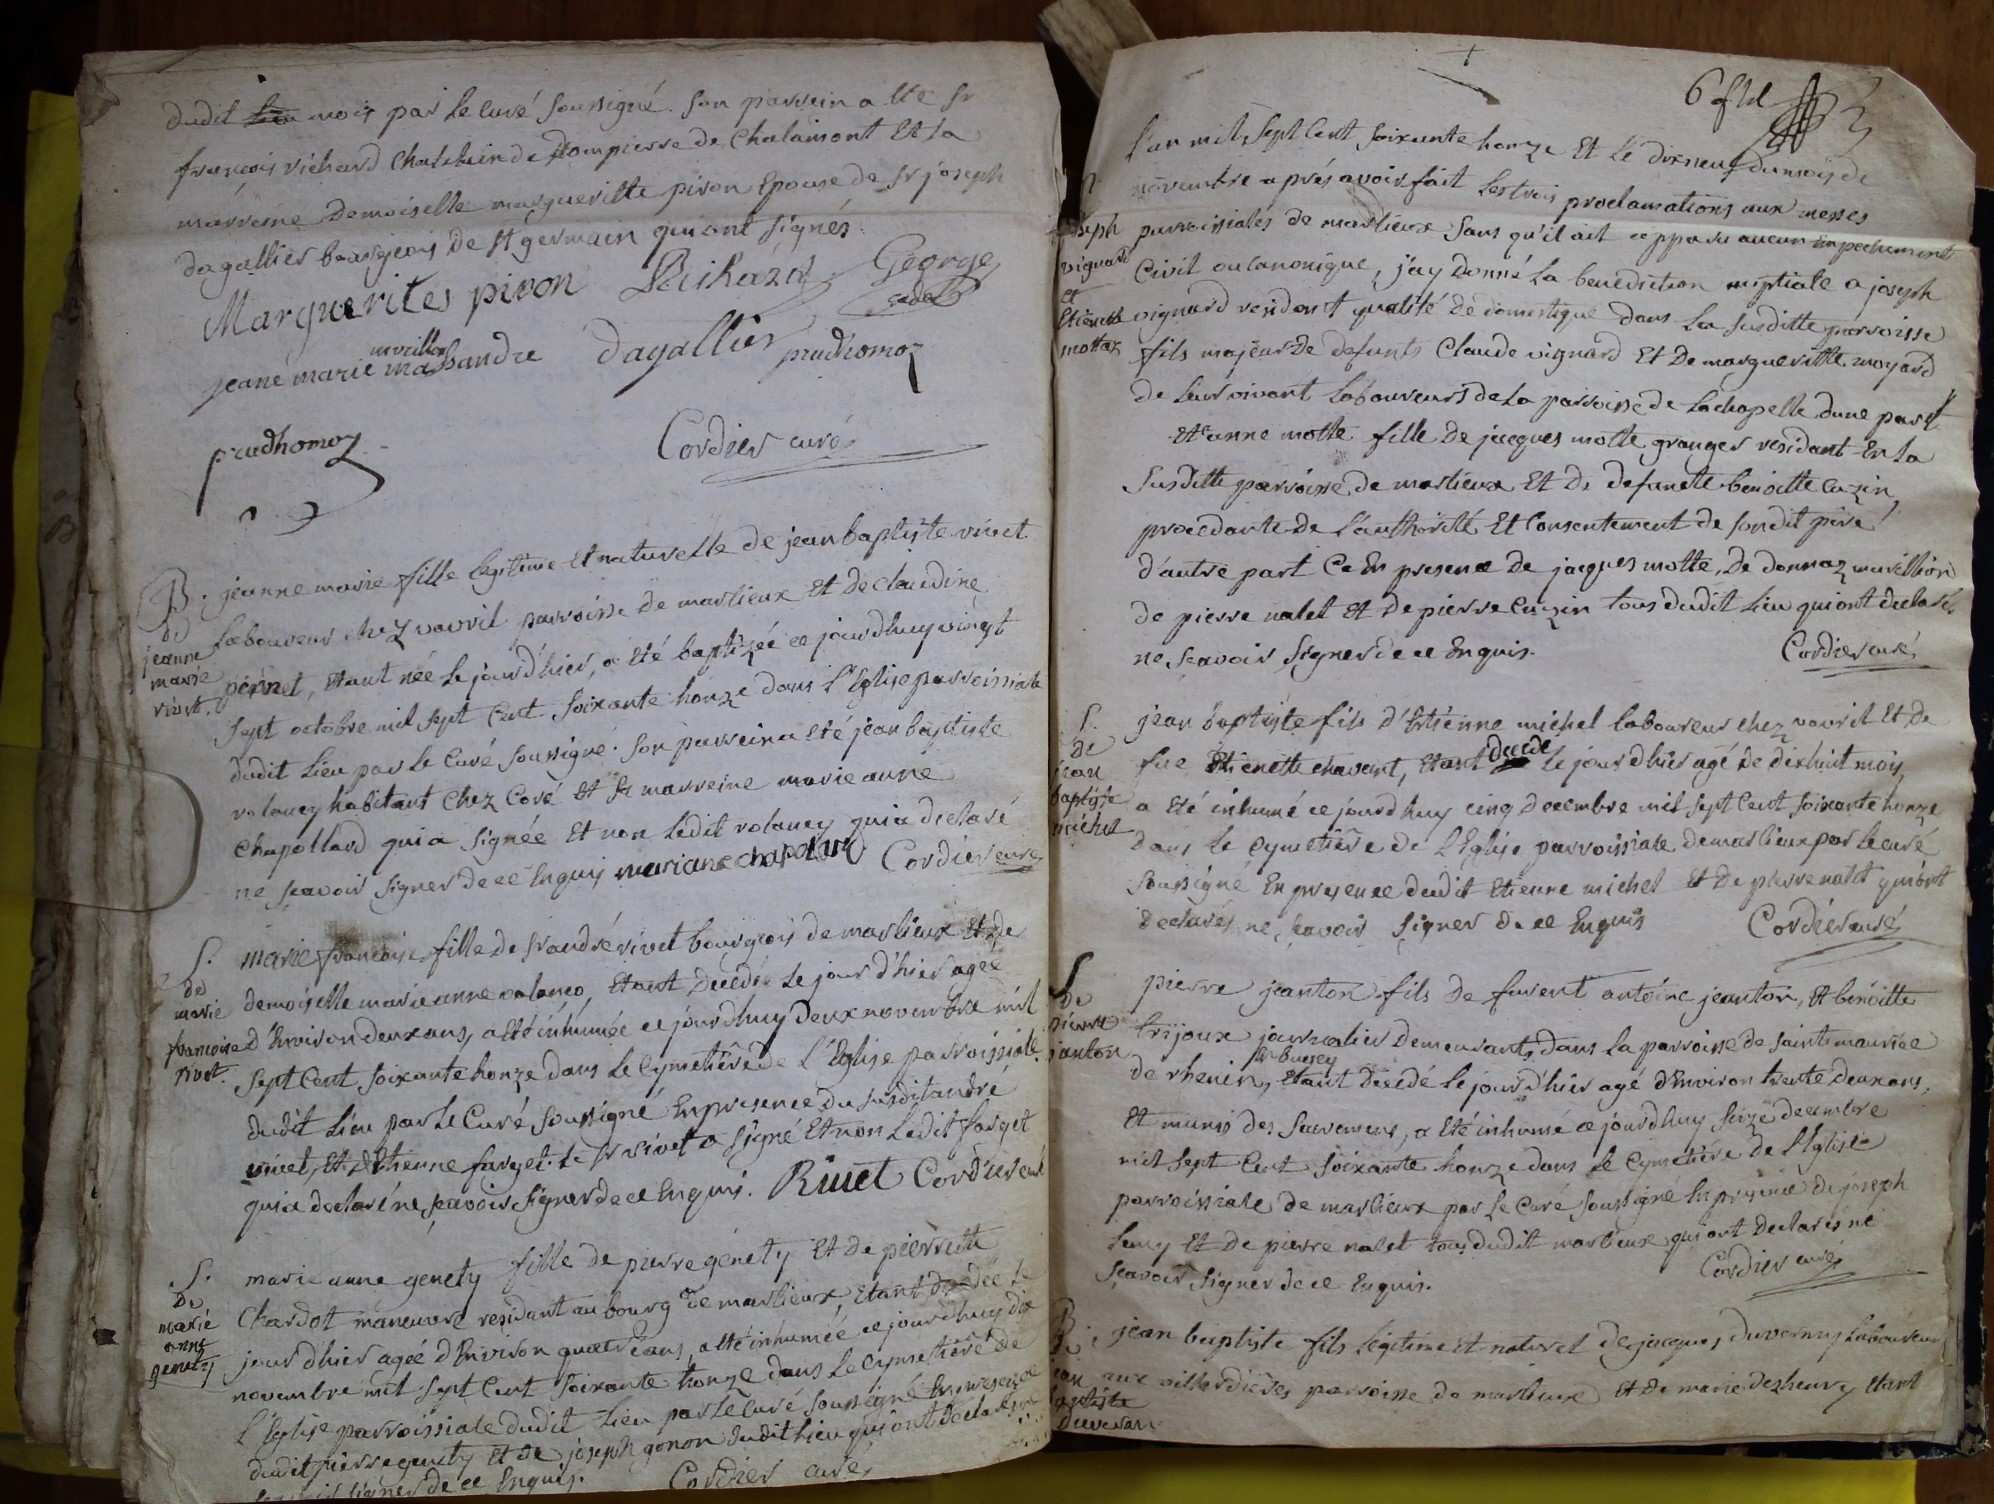 dudit lieu mois par le curé soussigné. son parrein a été sr
françois richard chatelain de dompierre de Chalamont Et la
marreine demoiselle margueritte piron Epouse de sr joseph
dagallier bourgeois de st germain qui ont signés.
Marguerites piron George
cadet
jeane marie dagallier prudhomoz
prudhomoz Cordier curé
B. jeanne marie fille legitime Et naturelle de jean baptiste rivet
de laboureur chez vavril parroisse de marlieux Et de claudine
jeanne
marie perret, Etant née le jour d'hier, a été baptizée ce jourdhuy vingt
rivet. sept octobre mil sept Cent soixante honze dans l'Eglise parroissiale
dudit lieu par le Curé soussigné. son parrein a Eté jean baptiste
volancy habitant chez Coré Et sa marreine marie anne
chapollard qui a signée Et non ledit volancy qui a declaré
ne sçavoir signer de ce Enquis mariane chapolard Cordier curé
S. marie françoise fille de sr andré rivet bourgeois de marlieux Et de
de
marie demoiselle marie anne valanco, Etant decedée le jour d'hier agée
françoise d'Environ deux ans, a été inhumée ce jourdhuy deux novembre mil
rivet. sept Cent soixante honze dans le Cymetière de l'Eglise parroissiale
dudit lieu par le Curé soussigné En presence du susdit andré
rivet, Et d'Etienne farget. le sr rivet a signé Et non ledit farget
qui a declaré ne sçavoir signer de ce Enquis. Rivet Cordier curé
S. marie anne genety fille de pierre genety Et de pierrette
De
marie Chardot maneuvre residant au bourg de marlieux, Etant decedée le
anne jour d'hier agée d'Environ quatre ans, a été inhumée ce jourdhuy dix
genety novembre mil sept Cent soixante honze dans le Cymetière de
l'Eglise parroissiale dudit lieu par le Curé soussigné En presence
dudit pierre genety Et de joseph gonon dudit lieu qui ont declaré ne
sçavoir signer de ce Enquis. Cordier curé
6
l'an mil sept Cent soixante honze Et le dixneuf du mois de
novembre après avoir fait les trois proclamations aux messes
joseph parroissiales de marlieux sans qu'il ait apparu aucun Empechement
vignard Civil ou Canonique, j'ay donné la benediction nuptiale a joseph
et
Etiennette vignard residant qualité de domestique dans la susditte parroisse
mottaz fils majeur de defunts Claude vignard Et de margueritte moyard
de leur vivant laboureurs de la parroisse de lachapelle d'une part
Et anne motte fille de jacques motte granger residant En la
susditte parroisse de marlieux Et de defunctte benoitte Cuzin
procedante de l'authorité Et Consentement de sondit père
d'autre part Ce En presence de jacques motte, de donnaz mavillion
de pierre nalet Et de pierre Cuzin tous dudit lieu qui ont declaré
ne sçavoir signer de ce Enquis. Cordier curé
S. jean baptiste fils d'Etienne michel laboureur chez vavril Et de
de
jean fue Etienette chavant, Etant decedé le jour d'hier agé de dixhuit mois
baptiste a été inhumé ce jourdhuy cinq decembre mil sept Cent soixante honze
michel dans le Cymetière de l'Eglise parroissiale de marlieux par le curé
soussigné En presence dudit Etienne michel Et de pierre nalet qui ont
declarés ne sçavoir signer de ce Enquis Cordier curé
S. pierre jeanton fils de fuvent antoine jeanton, Et benoitte
de
pierre trijoux journalier demeurants dans la parroisse de saint maurice
janton En bugey
de rhenins, Etant decedé le jour d'hier agé d'Environ trente deux ans,
Et munis des sacremens, a été inhumé ce jourdhuy seize decembre
mil sept Cent soixante honze dans le Cymetière de l'Eglise
parroissiale de marlieux par le Curé soussigné En presence de joseph
Et de pierre nalet tous dudit marlieux qui ont declarés ne
sçavoir signer de ce Enquis. Cordier curé
B. jean baptiste fils legitime Et naturel de jacques duvernay laboureur
De
jean aux villardières parroisse de marlieux Et de marie dezheury Etant
baptiste
duvernay